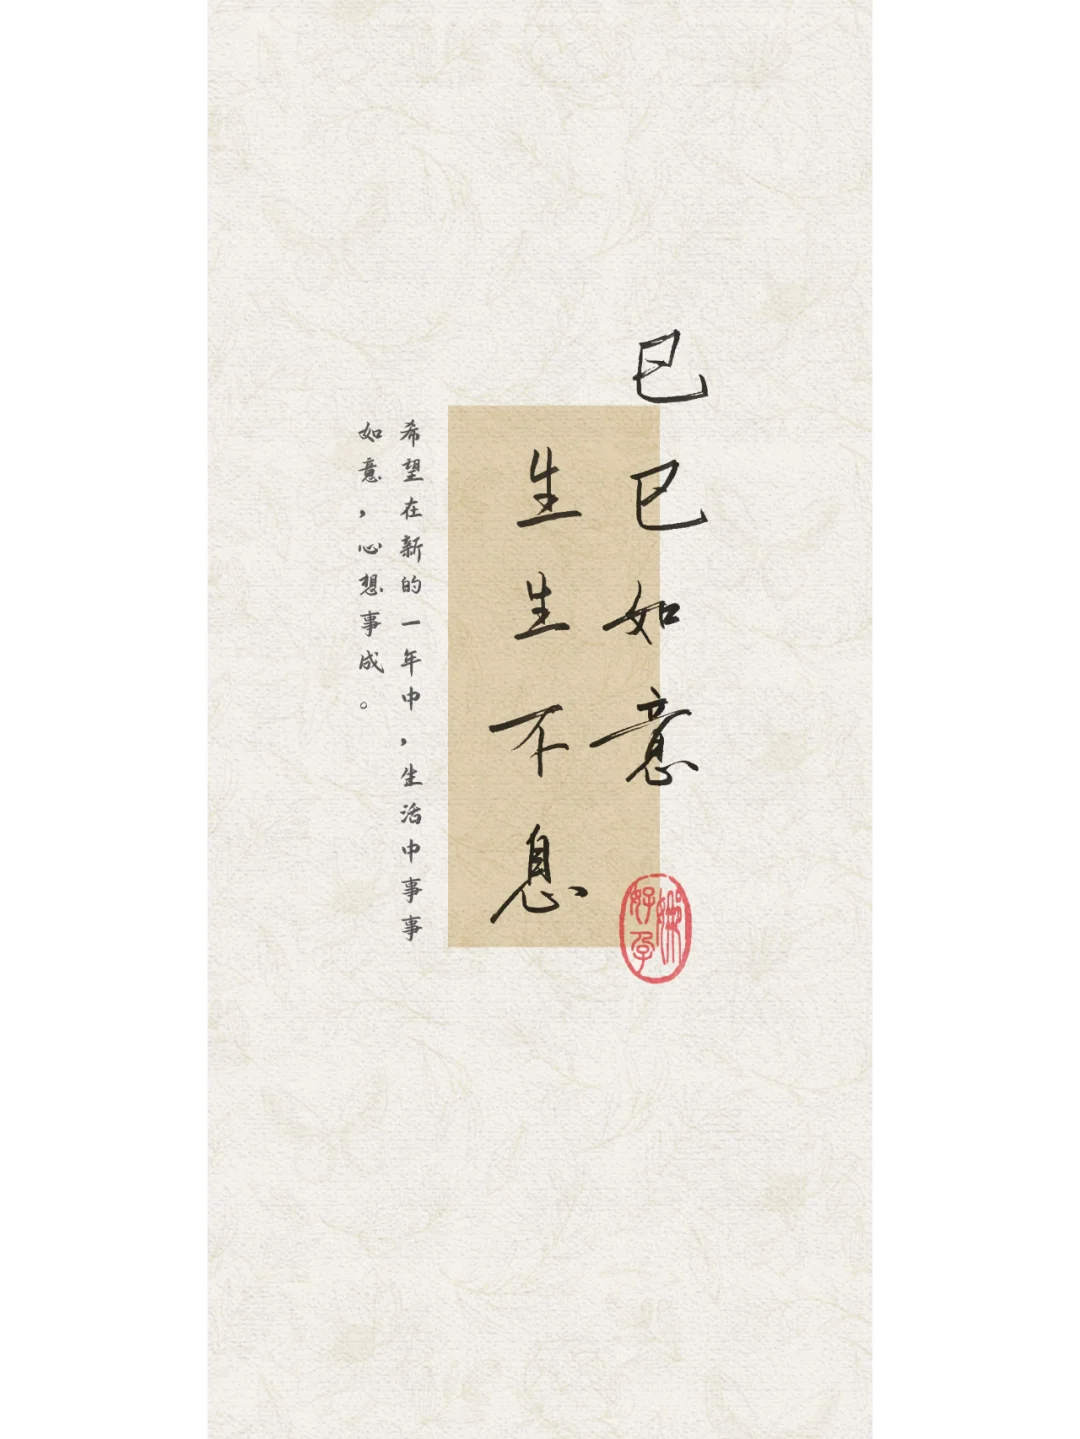 巳巳如意
生生不息
希望在新的一年中，生活中事事
如意，心想事成。
好孕